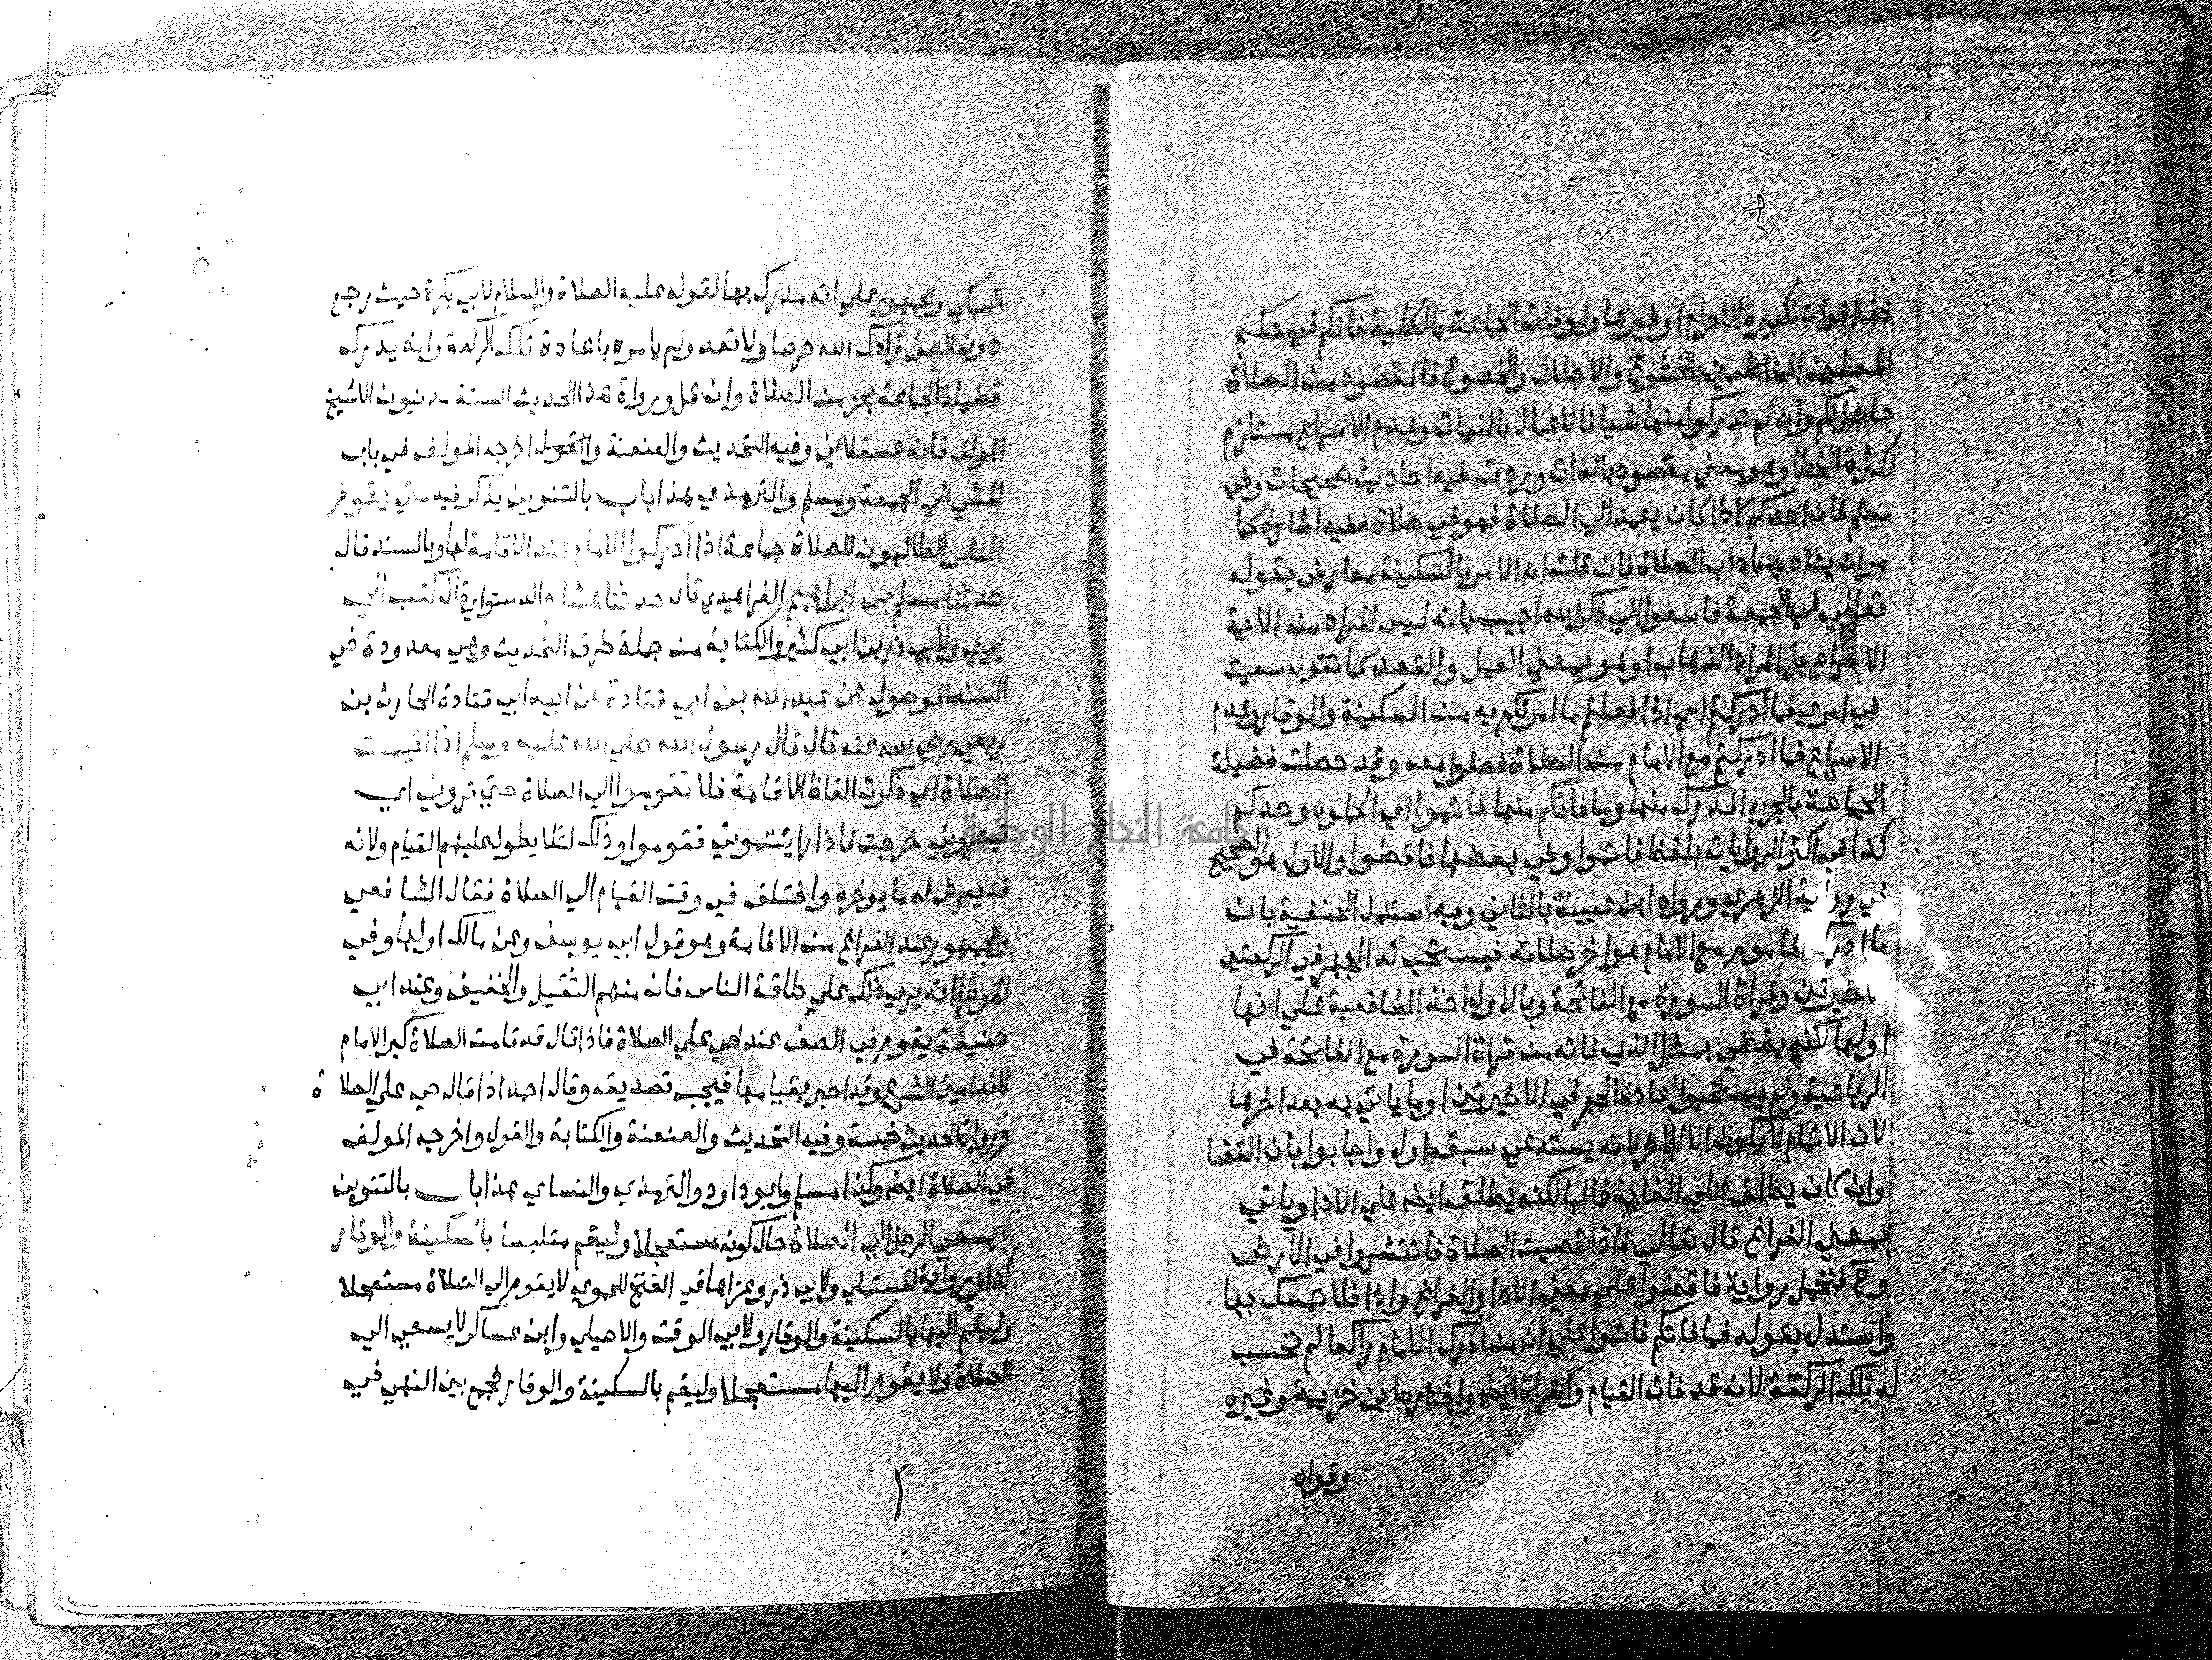 خفتم فوات تكبيرة الاحرام او غيرها ولو فاته الجماعة بالكلية فانكم في حكم
المصلين المخاطبين بالخشوع والاجلال والخضوع فالمقصود من الصلاة
حاصل لكم وان لم تدركوا منها شيا فالاعمال بالنيات وعدم الاسراع مستلزم
لكثرة الخطا وهو معني مقصود بالذات وردت فيه احاديث صحيحات وفي
مسلم فان احدكم اذا كان يعمد الي الصلاة فهو في صلاة ففيه اشارة كما
مر ان يتادب باداب الصلاة فان قلت ان الامر بالسكينة معارض بقوله
تعالي في الجمعة فاسعوا الي ذكر الله اجيب بانه ليس المراد من الاية
الاسراع بل المراد الذهاب او هو بمعني العمل والقصد كما تقول سعيت
في امري فما ادركتم اي اذا فعلتم ما امرتكم به من السكينة والوقار وعدم
الاسراع فما ادركتم مع الامام من الصلاة فصلوا معه وقد حصلت فضيلة
الجماعة بالجزء المدرك منها وما فاتكم منها فاتموا اي اكملوه وحدكم
كذا في اكثر الروايات بلفظ فاتموا وفي بعضها فاقضوا والاول هو الصحيح
في رواية الزهري ورواه ابن عيينة بالثاني وبه استدل الحنفية بان
ما ادرك الماموم مع الامام هو اخر صلاته فيستحب له الجهر في الركعتين
الاخيرتين وقراة السورة مع الفاتحة وبالاول اخذ الشافعية علي انها
اولها لكنه يقضي بمثل الذي فاته من قراة السورة مع الفاتحة في
الرباعية ولم يستحبوا اعادة الجهر في الاخيرتين او ما ياتي به بعد اخرها
لان الاتمام لا يكون الا للاخر لانه يستدعي سبق اول واجابوا بان القضا
وان كان يطلق علي الفاية غالبا لكنه يطلق ايضه علي الادا وياتي
بمعني الفراغ قال تعالي فاذا قضيت الصلاة فانتشروا في الارض
وح فتحمل رواية فاقضوا علي معني الادا والفراغ واذا فلا تمسك بها
واستدل بقوله فما فاتكم فاتموا علي ان من ادرك الامام راكعا لم تحسب
له تلك الركعة لانه قد فاته القيام والقراة ايضه واختاره ابن خزيمة وغيره
وقواه
السبكي والجمهور علي انه مدرك بها لقوله عليه الصلاة والسلام لابي بكرة حيث ركع
دون الصف زادك الله حرصا ولا تعد ولم يامره باعادة تلك الركعة وانه يدرك
فضيلة الجماعة بجزء من الصلاة وان قل ورواة هذا الحديث الستة مدنيون الا شيخ
المولف فانه عسقلاني وفيه التحديث والعنعنة والقول اخرجه المولف في باب
المشي الي الجمعة ومسلم والترمذي هذا باب بالتنوين يذكر فيه متي يقوم
الناس الطالبون للصلاة جماعة اذا ادركوا الامام عند الاقامة لها وبالسند قال
حدثنا مسلم بن ابراهيم الفراهيدي قال حدثنا هشام الدستواي قال كتب الي
يحيي ولابي ذر بن ابي كثير والكتابة من جملة طرق التحديث وهي معدودة في
المسند الموصول عن عبد الله بن ابي قتادة عن ابيه ابي قتادة الحارث بن
ربعي رضي الله عنه قال قال رسول الله صلي الله عليه وسلم اذا اقيمت
الصلاة اي ذكرت الفاظ الاقامة فلا تقوموا الي الصلاة حتي تروني اي
تبصروني خرجت فاذا رايتموني فقوموا وذلك لئلا يطول عليهم القيام ولانه
قد يعرض له ما يوخره واختلف في وقت القيام الي الصلاة فقال الشافعي
والجمهور عند الفراغ من الاقامة وهو قول ابي يوسف وعن مالك اولها وفي
الموطا انه يري ذلك علي طاقة الناس فان منهم الثقيل والخفيف وعند ابي
حنيفة يقوم في الصف عند حي علي الصلاة فاذا قال قد قامت الصلاة كبر الامام
لانه امين الشرع وقد اخبر بقيامها فيجب تصديقه وقال احمد اذا قال حي علي الصلاة
ورواة الحديث خمسة وفيه التحديث والعنعنة والكتابة والقول واخرجه المولف
في الصلاة ايضه وكذا مسلم وابو داود والترمذي والنساي هذا باب بالتنوين
لا يسعي الرجل الي الصلاة حال كونه مستعجلا وليقم متلبسا بالسكينة والوقار
كذا في رواية المستملي ولابي ذر وعزاها في الفتح للحموي لا يقوم الي الصلاة مستعجلا
وليقم اليها بالسكينة والوقار ولابي الوقت والاصيلي وابن عساكر لا يسعي الي
الصلاة ولا يقوم اليها مستعجلا وليقم بالسكينة والوقار فجمع بين النهي في
جامعة النجاح الوطنية